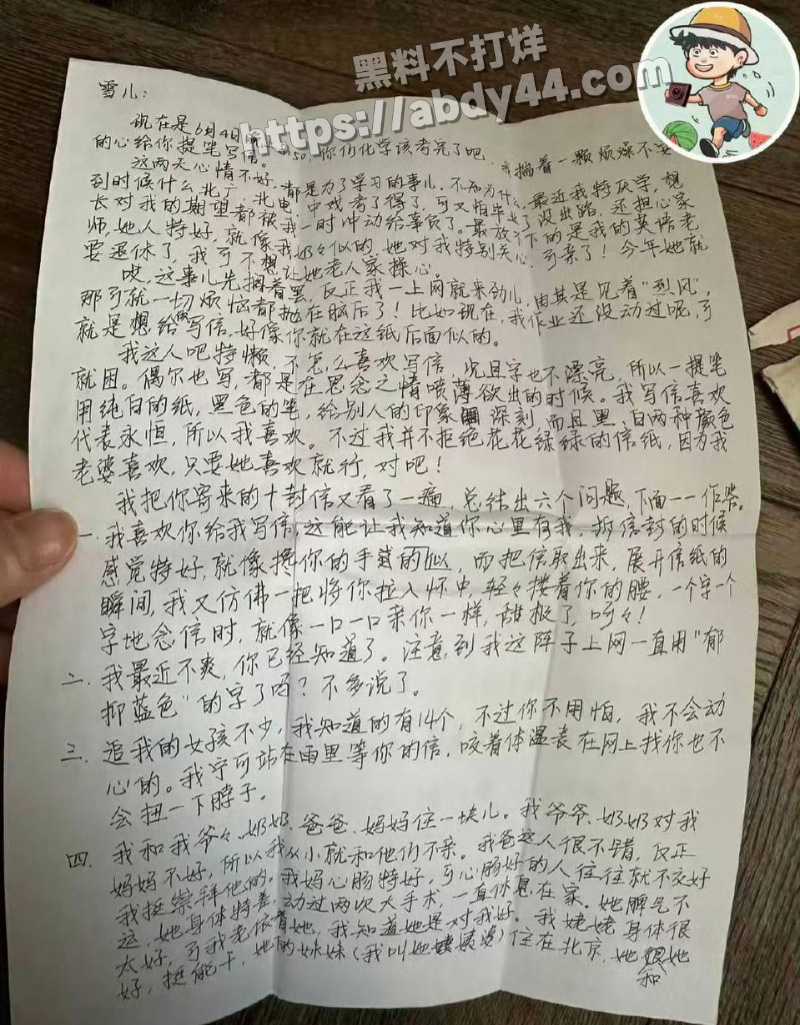 黑料不打烊
https://abdy44.com
雪儿：
现在是6月4日 50，你们化学该考完了吧，我揣着一颗烦燥不安
的心给你提笔写信。
这两天心情不好，都是为了学习的事儿，不知为什么，最近我特厌学，想
到时候什么北广、北电、中戏考了得了，可又怕毕业了没出路，还担心家
长对我的期望都被我一时冲动给辜负了。最放不下的是我的英语老
师，她人特好，就像我奶々似的，她对我特别关心，可亲了！今年她就
要退休了，我可不想让她老人家操心。
哎，这事儿先搁着罢，反正我一上网就来劲儿，由其是见着"烈风"，
那可就一切烦恼都抛在脑后了！比如现在，我作业还没动过呢，可
就是想给你写信，好像你就在这纸后面似的。
我这人吧特懒，不怎么喜欢写信，况且字也不漂亮，所以一提笔
就困。偶尔也写，都是在思念之情喷薄欲出的时候。我写信喜欢
用纯白的纸，黑色的笔，给别人的印象深刻，而且黑、白两种颜色
代表永恒，所以我喜欢。不过我并不拒绝花花绿绿的信纸，因为我
老婆喜欢，只要她喜欢就行，对吧！
我把你寄来的十封信又看了一遍，总结出六个问题，下面一一作答。
一.我喜欢你给我写信，这能让我知道你心里有我，拆信封的时候
感觉特好，就像搀你的手似的，而把信取出来，展开信纸的
瞬间，我又仿佛一把将你拉入怀中，轻々搂着你的腰，一个字一个
字地念信时，就像一口一口亲你一样，甜极了，呵々！
二.我最近不爽，你已经知道了。注意到我这阵子上网一直用"郁
抑蓝色"的字了吗？不多说了。
三.追我的女孩不少，我知道的有14个，不过你不用怕，我不会动
心的。我宁可站在雨里等你的信，咬着体温表在网上找你也不
会扭一下脖子。
四.我和我爷々、奶奶、爸爸、妈妈住一块儿。我爷爷、奶奶对我
妈妈不好，所以我从小就和他们不亲。我爸这人很不错，反正
我挺崇拜他的。我妈心肠特好，可心肠好的人往往就不交好
运，她身体特差，动过两次大手术，一直休息在家。她脾气不
太好，可我老依着她，我知道她是对我好。我姥姥身体很
好，挺能干，她的妹妹（我叫她姨姥）住在北京，她和她